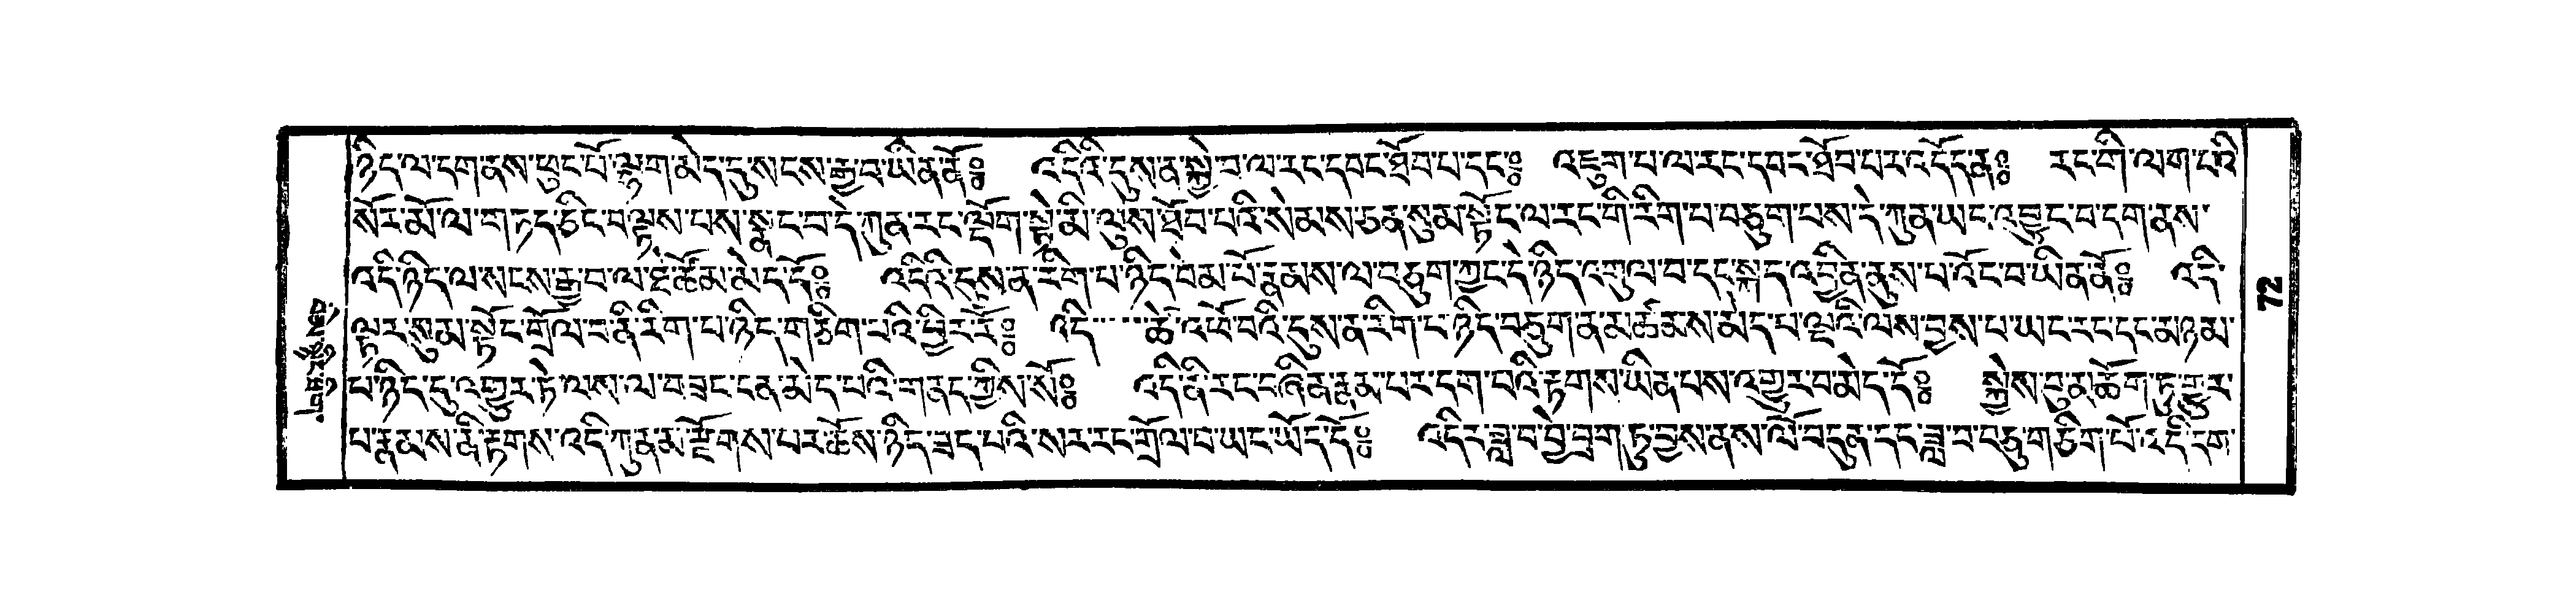 ཉིད་ལ་དག་ནས་ཕུང་པོ་ལྷག་མེད་དུ་སངས་རྒྱ་བ་ཡིན་ནོ༔ འདིའི་དུས་ན་སྐྱེ་བ་ལ་རང་དབང་ཐོབ་པ་དང༔ འཇུག་པ་ལ་རང་དབང་ཐོབ་པར་འདོད་ན༔ རང་གི་ལག་པའི་
སོར་མོ་ལ་གཏད་ཅིང་བལྟས་པས་སྣང་བ་དེ་ཀུན་རང་ལྡོག་སྟེ་མི་ལུས་ཐོབ་པའི་སེམས་ཅན་སུམ་སྟོང་ལ་རང་གི་རིག་པ་བཅུག་པས་དེ་ཀུན་ཡང་འབྱུང་བ་དག་ནས་
འདི་ཉིད་ལ་སངས་རྒྱ་བ་ལ་ཐེ་ཚོམ་མེད་དོ༔ འདིའི་དུས་ན་རིག་པ་ཉིད་བེམ་པོ་རྣམས་ལ་བཅུག་ཀྱང་དེ་ཉིད་འགུལ་བ་དང་སྐད་འབྱིན་ནུས་པ་འོང་བ་ཡིན་ནོ༔ འདི་
ལྟར་སུམ་སྟོང་གྲོལ་བ་ནི་རིག་པ་ཉིད་གཅིག་པའི་ཕྱིར་རོ༔ འདི་ ཚེ་འཕོ་བའི་དུས་ན་རིག་པ་ཉིད་བཅུག་ན་མཚམས་མེད་པ་ལྔའི་ལས་བྱས་པ་ཡང་རང་དང་མཉམ་
པ་ཉིད་དུ་འགྱུར་ཏེ་ལས་ལ་བཟང་ངན་མེད་པའི་གནད་ཀྱིས་སོ༔ འདི་ནི་རང་བཞིན་རྣམ་པར་དག་པའི་རྟགས་ཡིན་པས་འགྱུར་བ་མེད་དོ༔ སྐྱེས་བུ་མཆོག་ཏུ་གྱུར་
པ་རྣམས་ནི་རྟགས་འདི་ཀུན་མ་རྫོགས་པར་ཆོས་ཉིད་ཟད་པའི་སར་རང་གྲོལ་བ་ཡང་ཡོད་དོ༔ འདིར་ཟླ་བ་བྱེ་བྲག་ཏུ་བྱས་ནས་ལོ་བདུན་དང་ཟླ་བ་བཅུ་གཅིག་པོ་འདི་དག་